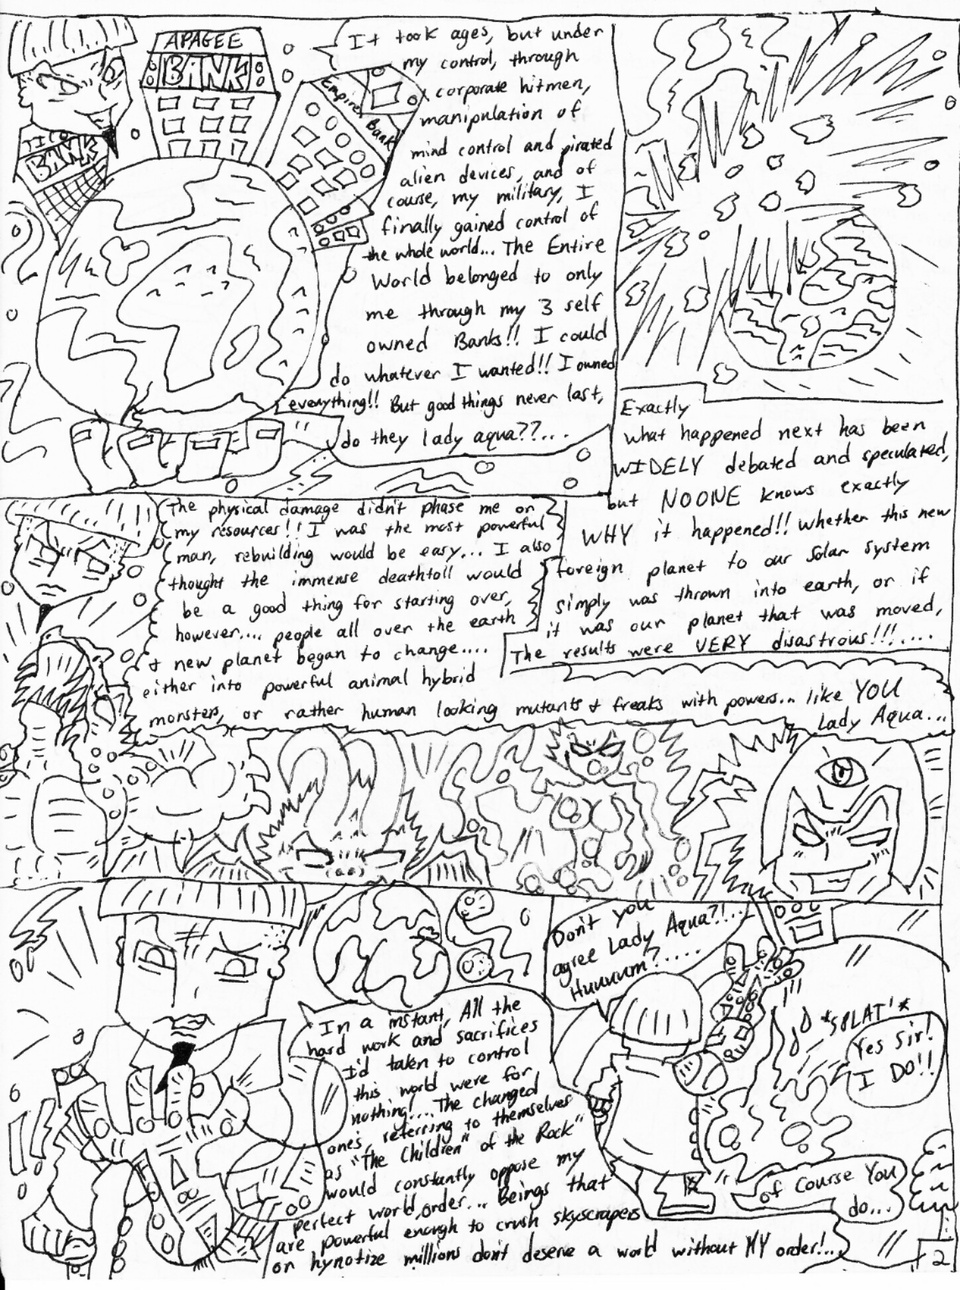 APAGEE
BANK
Empire Bank
BANK
It took ages, but under
my control, through
corporate hitmen,
manipulation of
mind control and pirated
alien devices, and of
course, my military, I
finally gained control of
the whole world... The Entire
World belonged to only
me through my 3 self
owned Banks!! I could
do whatever I wanted!! I owned
everything!! But good things never last,
do they lady aqua??...
Exactly
what happened next has been
WIDELY debated and speculated,
but NOONE knows exactly
WHY it happened!! Whether this new
foreign planet to our solar system
simply was thrown into earth, or if
it was our planet that was moved,
The results were VERY disastrous!!!....
The physical damage didn't phase me or
my resources!! I was the most powerful
man, rebuilding would be easy... I also
thought the immense deathtoll would
be a good thing for starting over,
however.... people all over the earth
+ new planet began to change....
either into powerful animal hybrid
monsters, or rather human looking mutants + freaks with powers... like YOU
Lady Aqua...
In a instant, All the
hard work and sacrifices
I'd taken to control
this world were for
nothing.... The changed
ones, referring to themselves
as "The Children" of the Rock"
would constantly oppose my
perfect world order... Beings that
are powerful enough to crush skyscrapers
or hynotize millions don't deserve a world without MY order!..
Don't you
agree Lady Aqua?!...
Huuuum?....
*SPLAT*
Yes Sir!
I DO!!
of Course You
do...
2